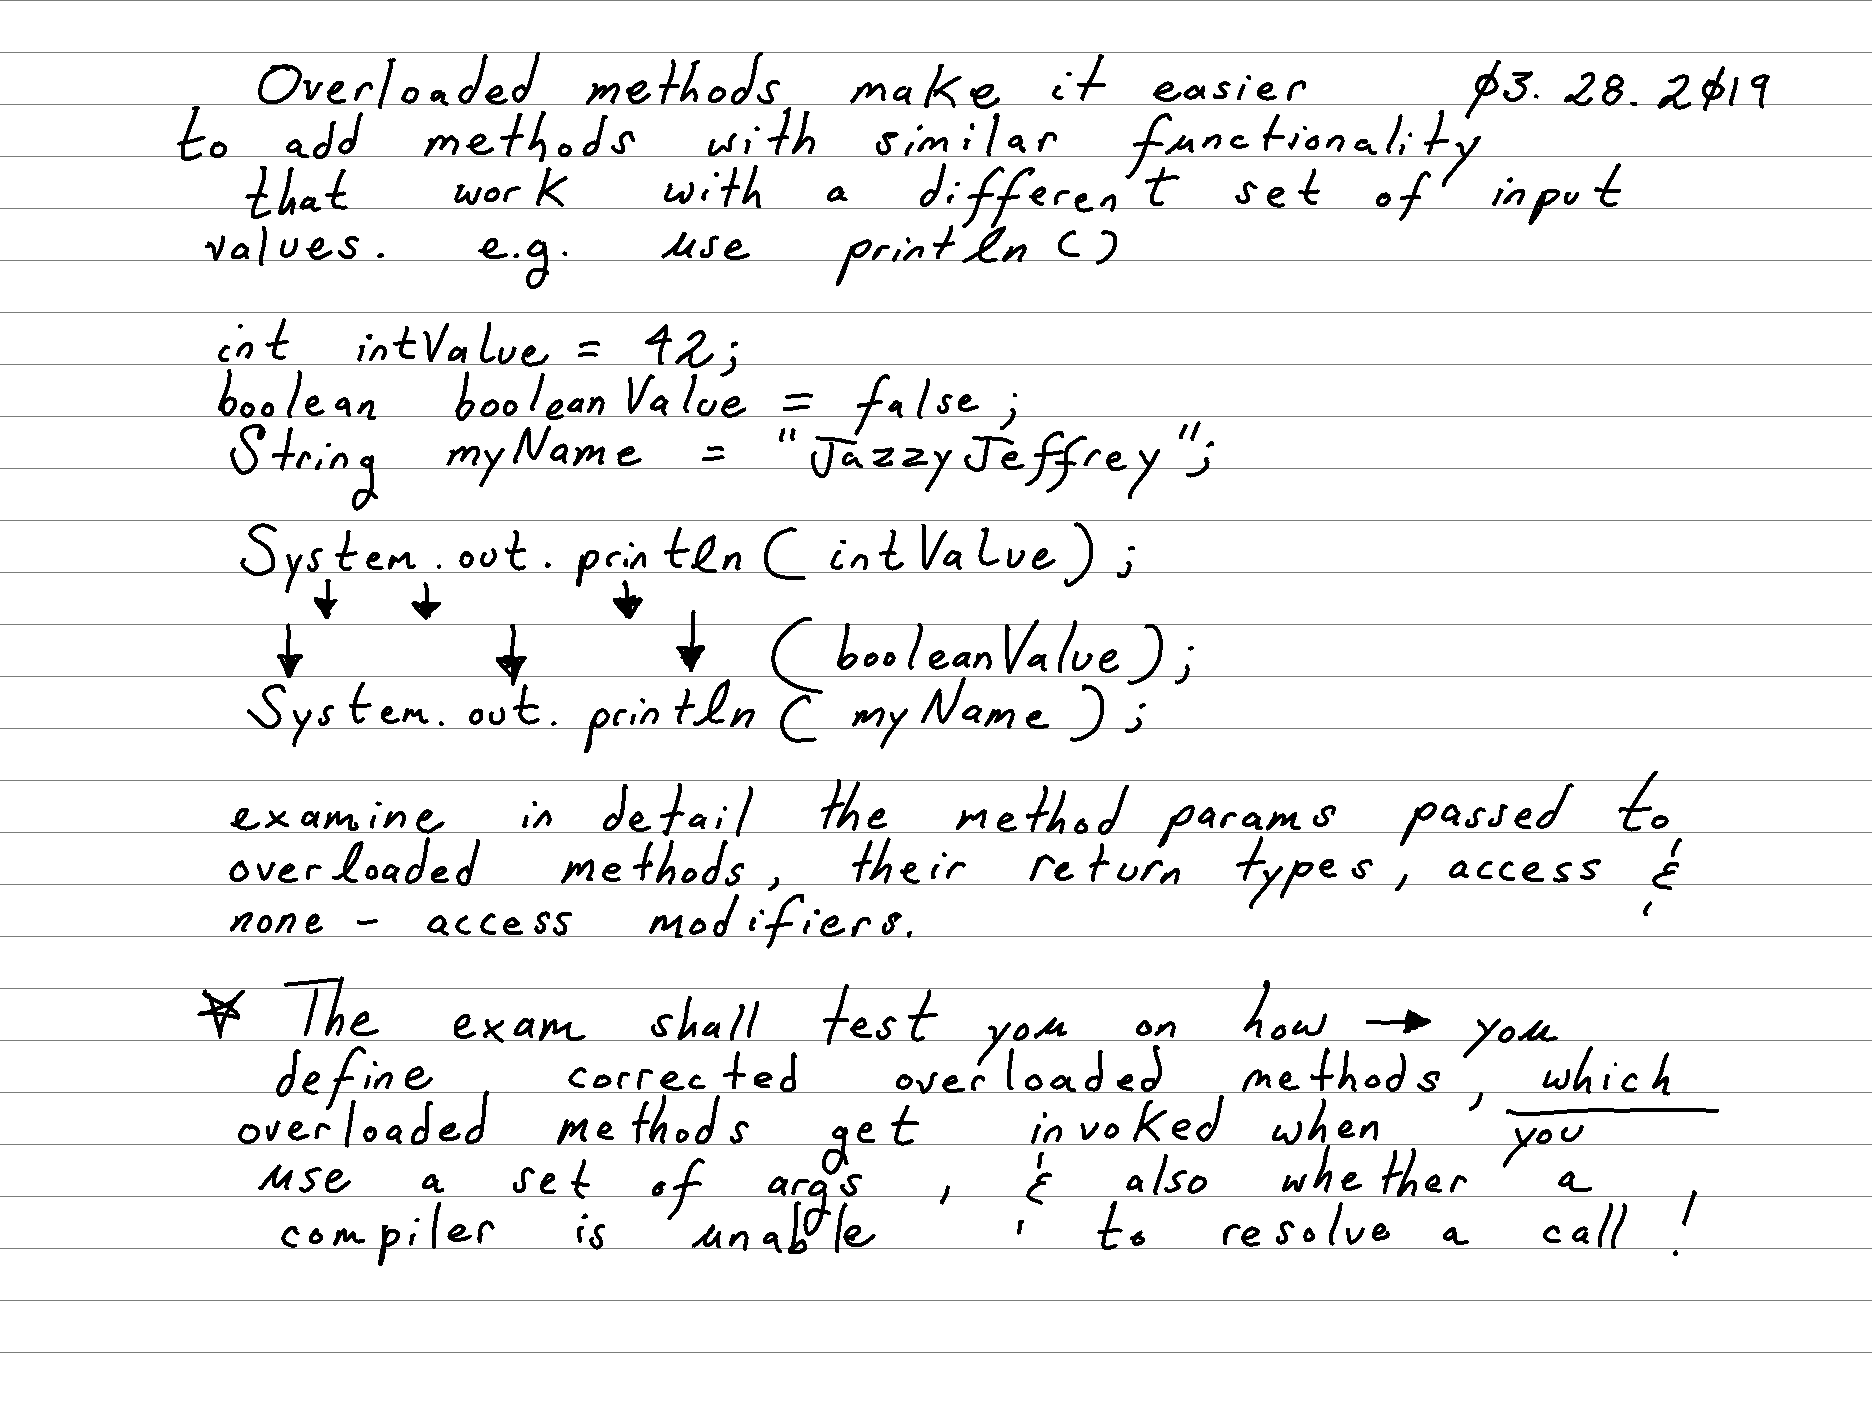 Overloaded methods make it easier 03.28.2019
to add methods with similar functionality
that work with a different set of input
values. e.g. use println()
int intValue = 42;
boolean booleanValue = false;
String myName = "JazzyJeffrey";
System.out.println(intValue);
↓ ↓ ↓
↓ ↓ ↓ (booleanValue);
System.out.println(myName);
examine in detail the method params passed to
overloaded methods, their return types, access &
none - access modifiers.
☆ The exam shall test you on how → you
define corrected overloaded methods, which
overloaded methods get invoked when you
use a set of args, & also whether a
compiler is unable to resolve a call!